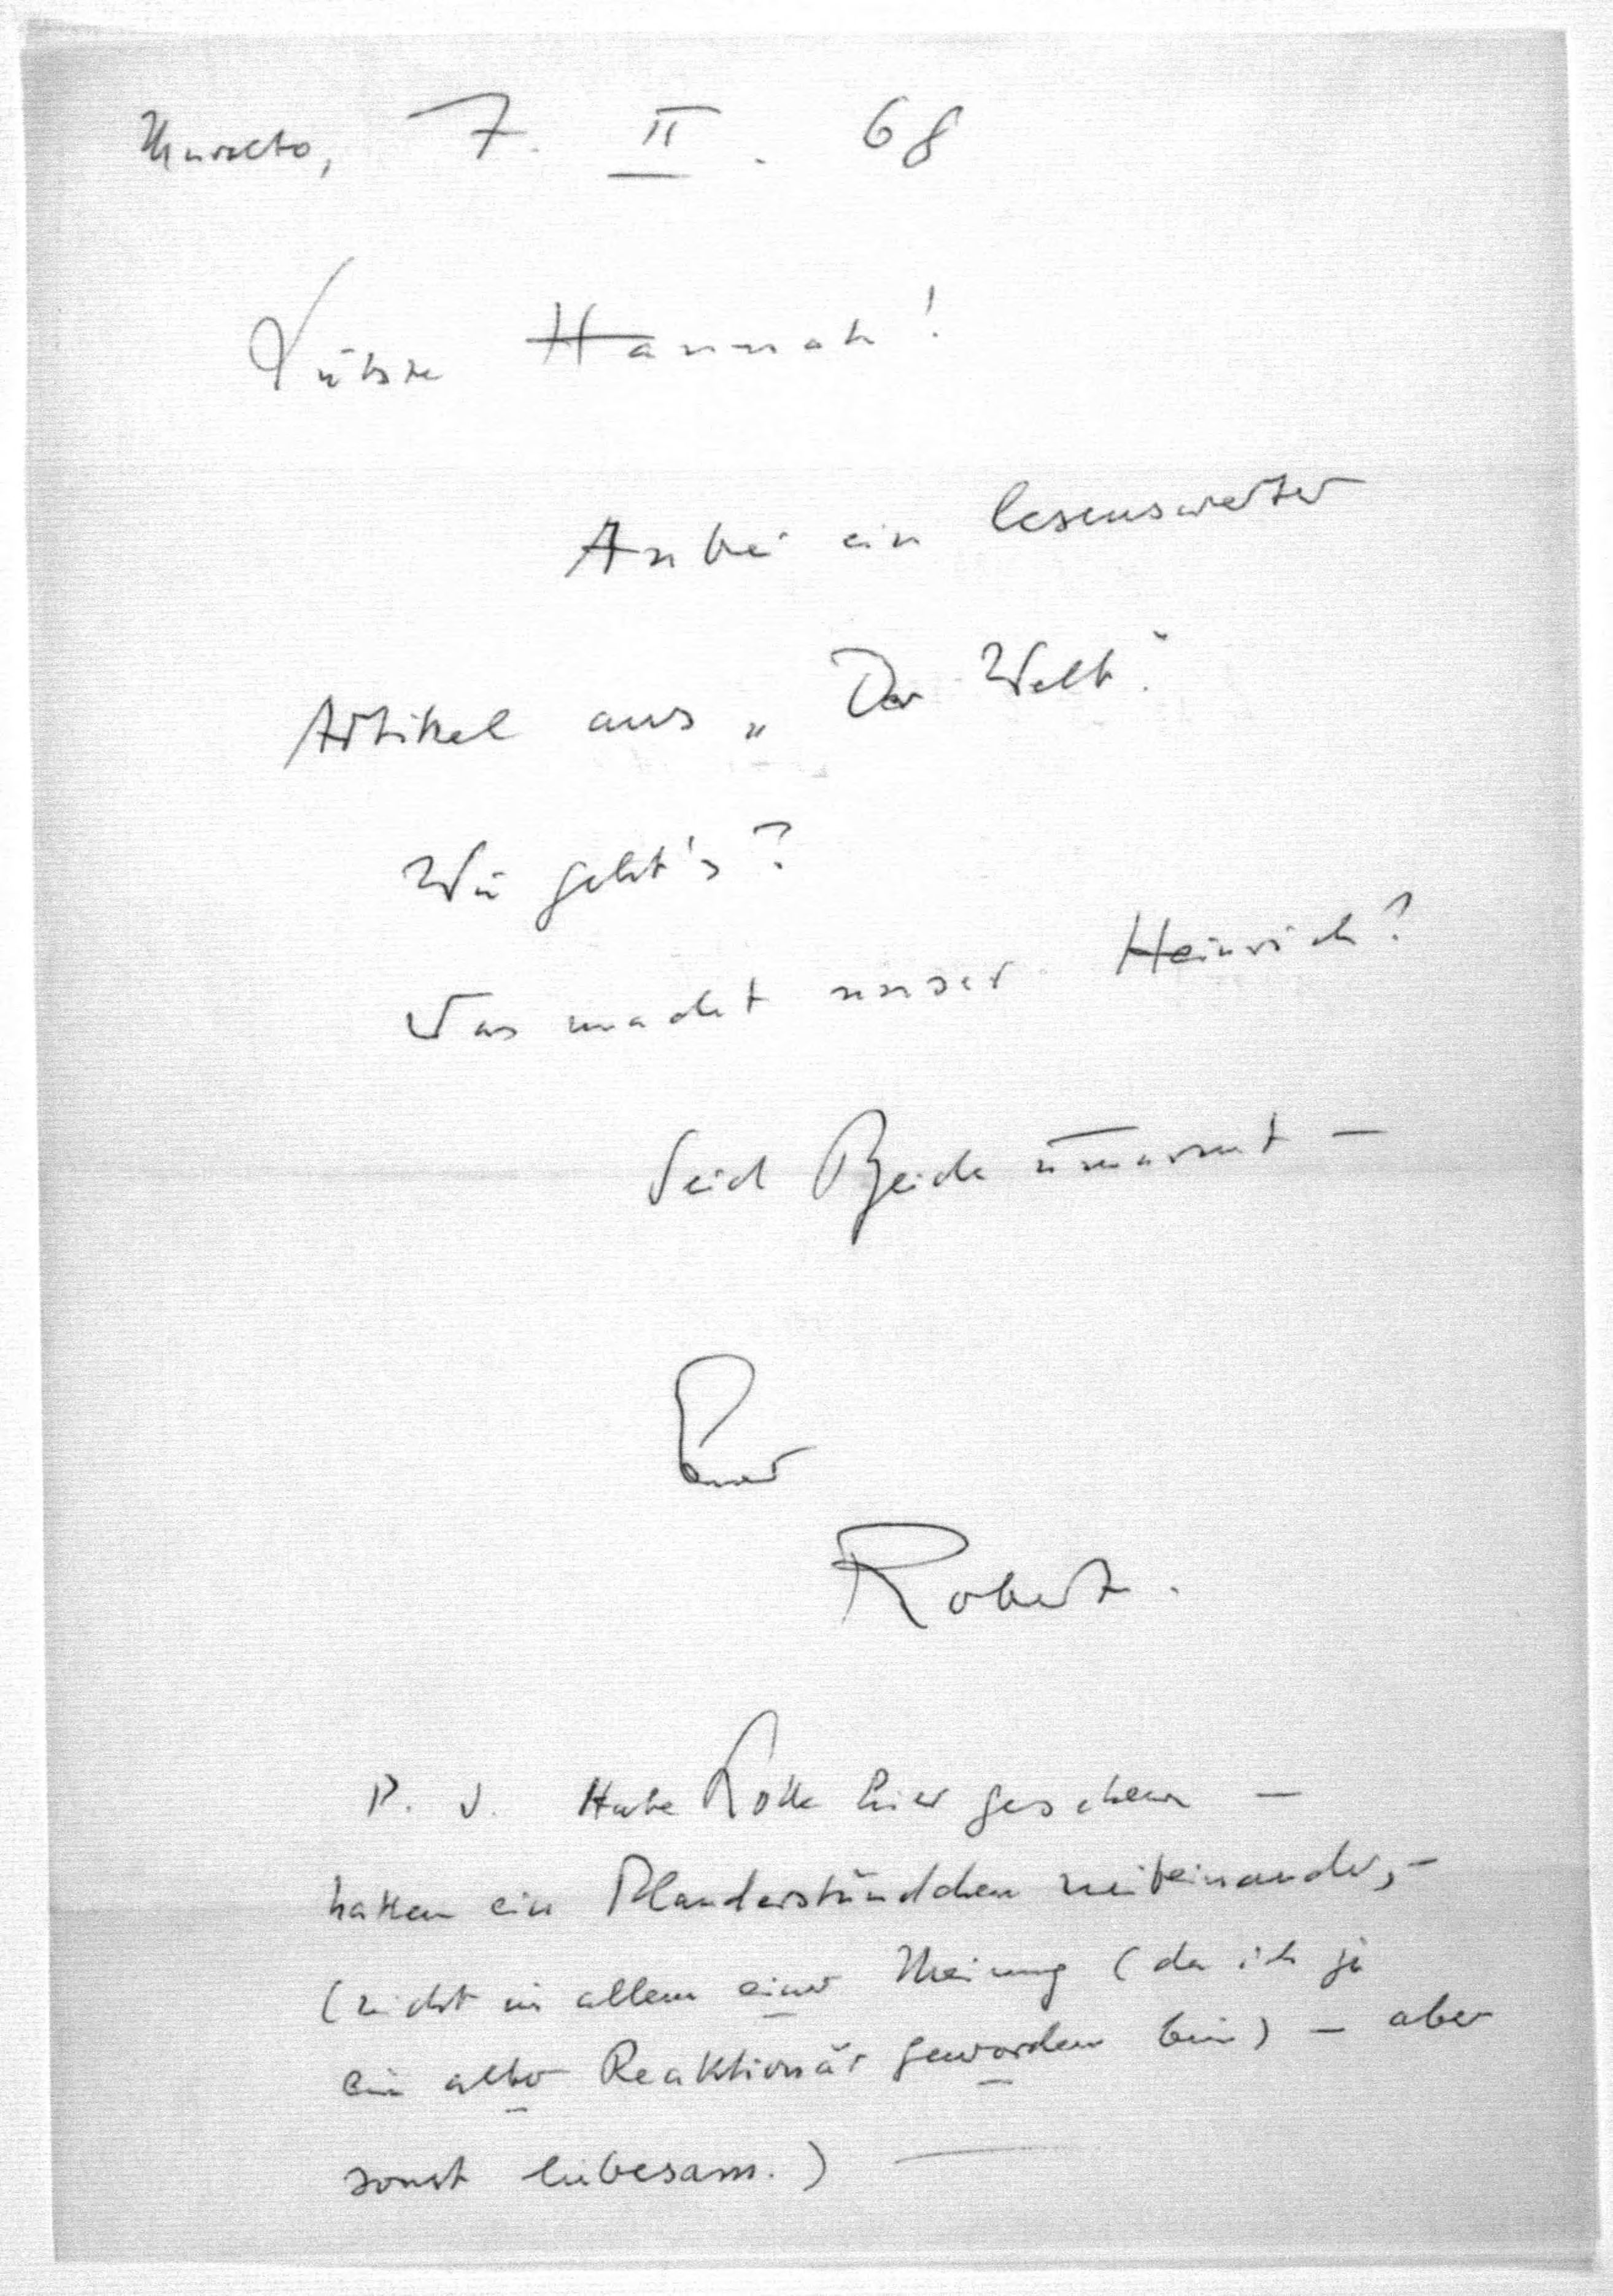 Muralto, 7. II. 68
Liebste Hannah!
Anbei ein lesenswerter
Artikel aus „Der Welt".
Wie geht's?
Was macht unser Heinrich?
Seid Beide umarmt —
Euer
Robert.
P. S. Habe Lotte hier gesehen —
hatten ein Plauderstündchen miteinander, –
(nicht in allem einer Meinung (da ich ja
ein alter Reaktionär geworden bin) – aber
sonst liebesam.) —